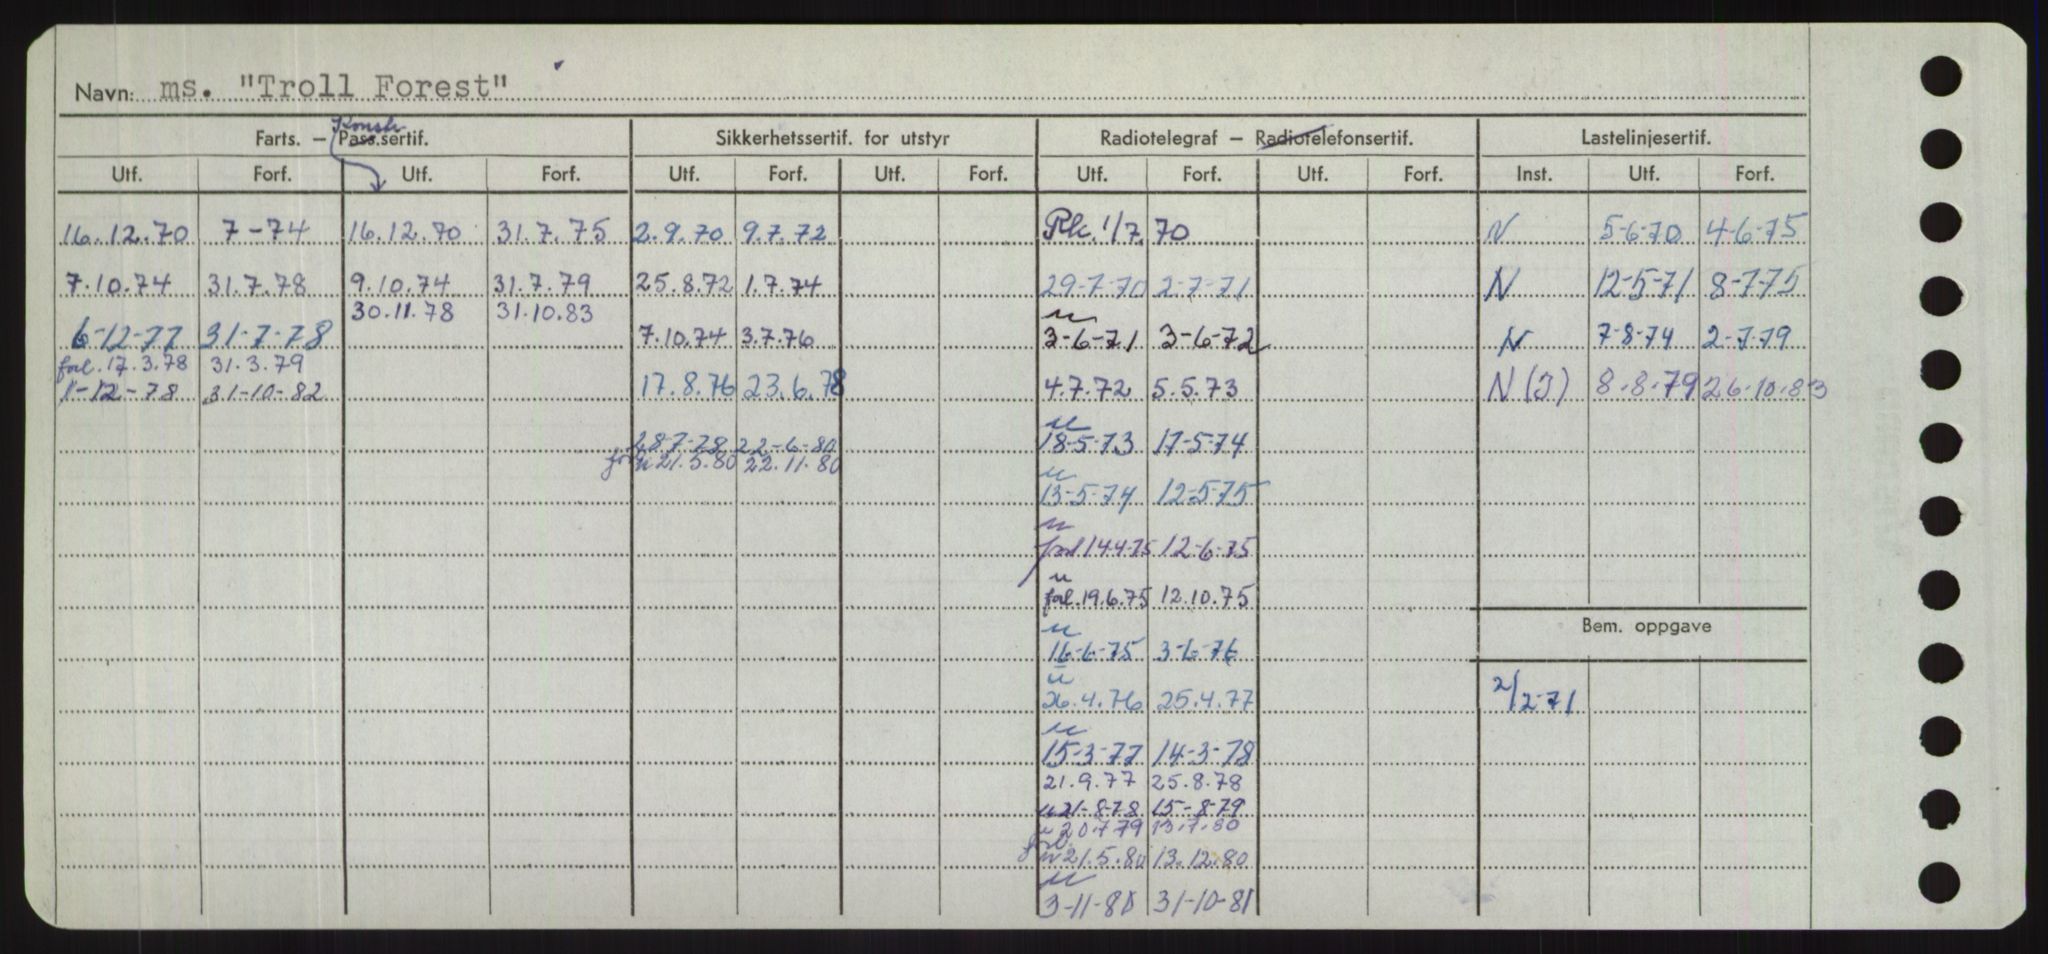 Navn: ms. "Troll Forest"
Farts. – Pass.sertif. Konstr. Sikkerhetssertif. for utstyr Radiotelegraf – Radiotelefonsertif. Lastelinjesertif.
Utf. Forf. Utf. Forf. Utf. Forf. Utf. Forf. Utf. Forf. Utf. Forf. Inst. Utf. Forf.
16.12.70 7-74 16.12.70 31.7.75 2.9.70 9.7.72 Rk. 1/7.70 N 5-6-70 4-6-75
7.10.74 31.7.78 9.10.74 31.7.79 25.8.72 1.7.74 29-7-70 2-7-71 N 12-5-71 8-7-75
30.11.78 31.10.83
u
6-12-77 31-7-78 7.10.74 3.7.76 3-6-71 3-6-72 N 7-8-74 2-7-79
forl. 17.3.78 31.3.79
1-12-78 31-10-82 17.8.76 23.6.78 4.7.72 5.5.73 N(I) 8-8-79 26-10-83
u
28-7-78 22-6-80 18-5-73 17-5-74
forl. u 21.5.80 22.11.80
u
13-5-74 12-5-75
u
forl 14-4-75 12-6-75
u
forl. 19.6.75 12.10.75
Bem. oppgave
u
16-6-75 3-6-76
u
26.4.76 25.4.77 2/2-71
u
15-3-77 14-3-78
21.9.77 25.8.78
u 21-8-78 15-8-79
u 20.7.79 13.7.80
forl.
u 21.5.80 13.12.80
u
3-11-80 31-10-81